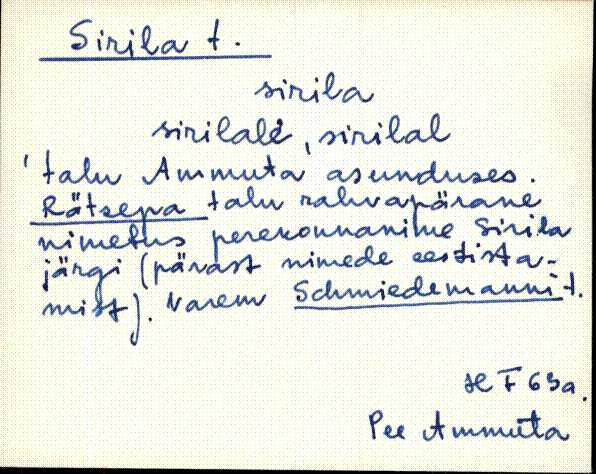 Sirila t.
sirila
sirilale, sirilal
'talu Ammuta asunduses.
Rätsepa talu rahvapärane
nimetus perekonnanime Sirila
järgi (pärast nimede eestista-
mist). Varem Schmiedemanni t.
63a.
Pee Ammuta